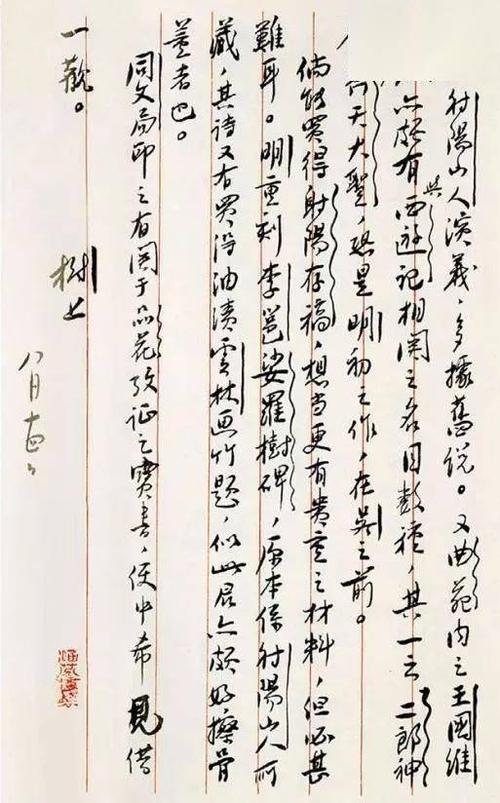 射陽山人演義,多據舊說。又曲苑内之王國維
亦頗有與西遊記相関之名目數種,其一云二郎神
天大聖,恐是明初之作,在吳之前。
倘能買得射陽存稿,想当更有貴重之材料,但必甚
難耳。明重刻李邕娑羅樹碑,原本係射陽山人所
藏,其詩又有買得油漬雲林画竹題,似此君亦頗好擦骨
董者也。
同文局印之有関于品花攷证之寶書,便中希見借
一觀。
樹上
八月十四日